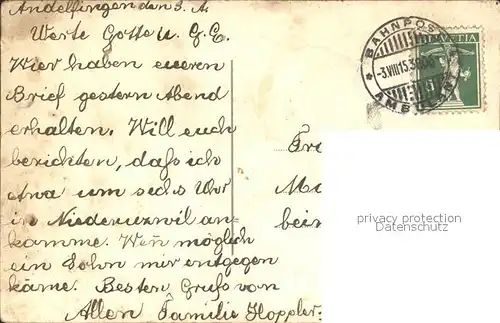 Andelfingen den 3. A.
Werte Gotte u. G. E.
Wier haben eueren
Brief gestern Abend
erhalten. Will euch
berichten, daſs ich
etwa um sechs Uhr
in Niederuzwil an-
komme. Wen̄ möglich
ein Sohn mir entgegen
käme. Besten Gruſs von
Allen Familie Hoppler.
BAHNPOST
AMBULANT
HELVETIA
Fr
Ma
bein
privacy protection
Datenschutz